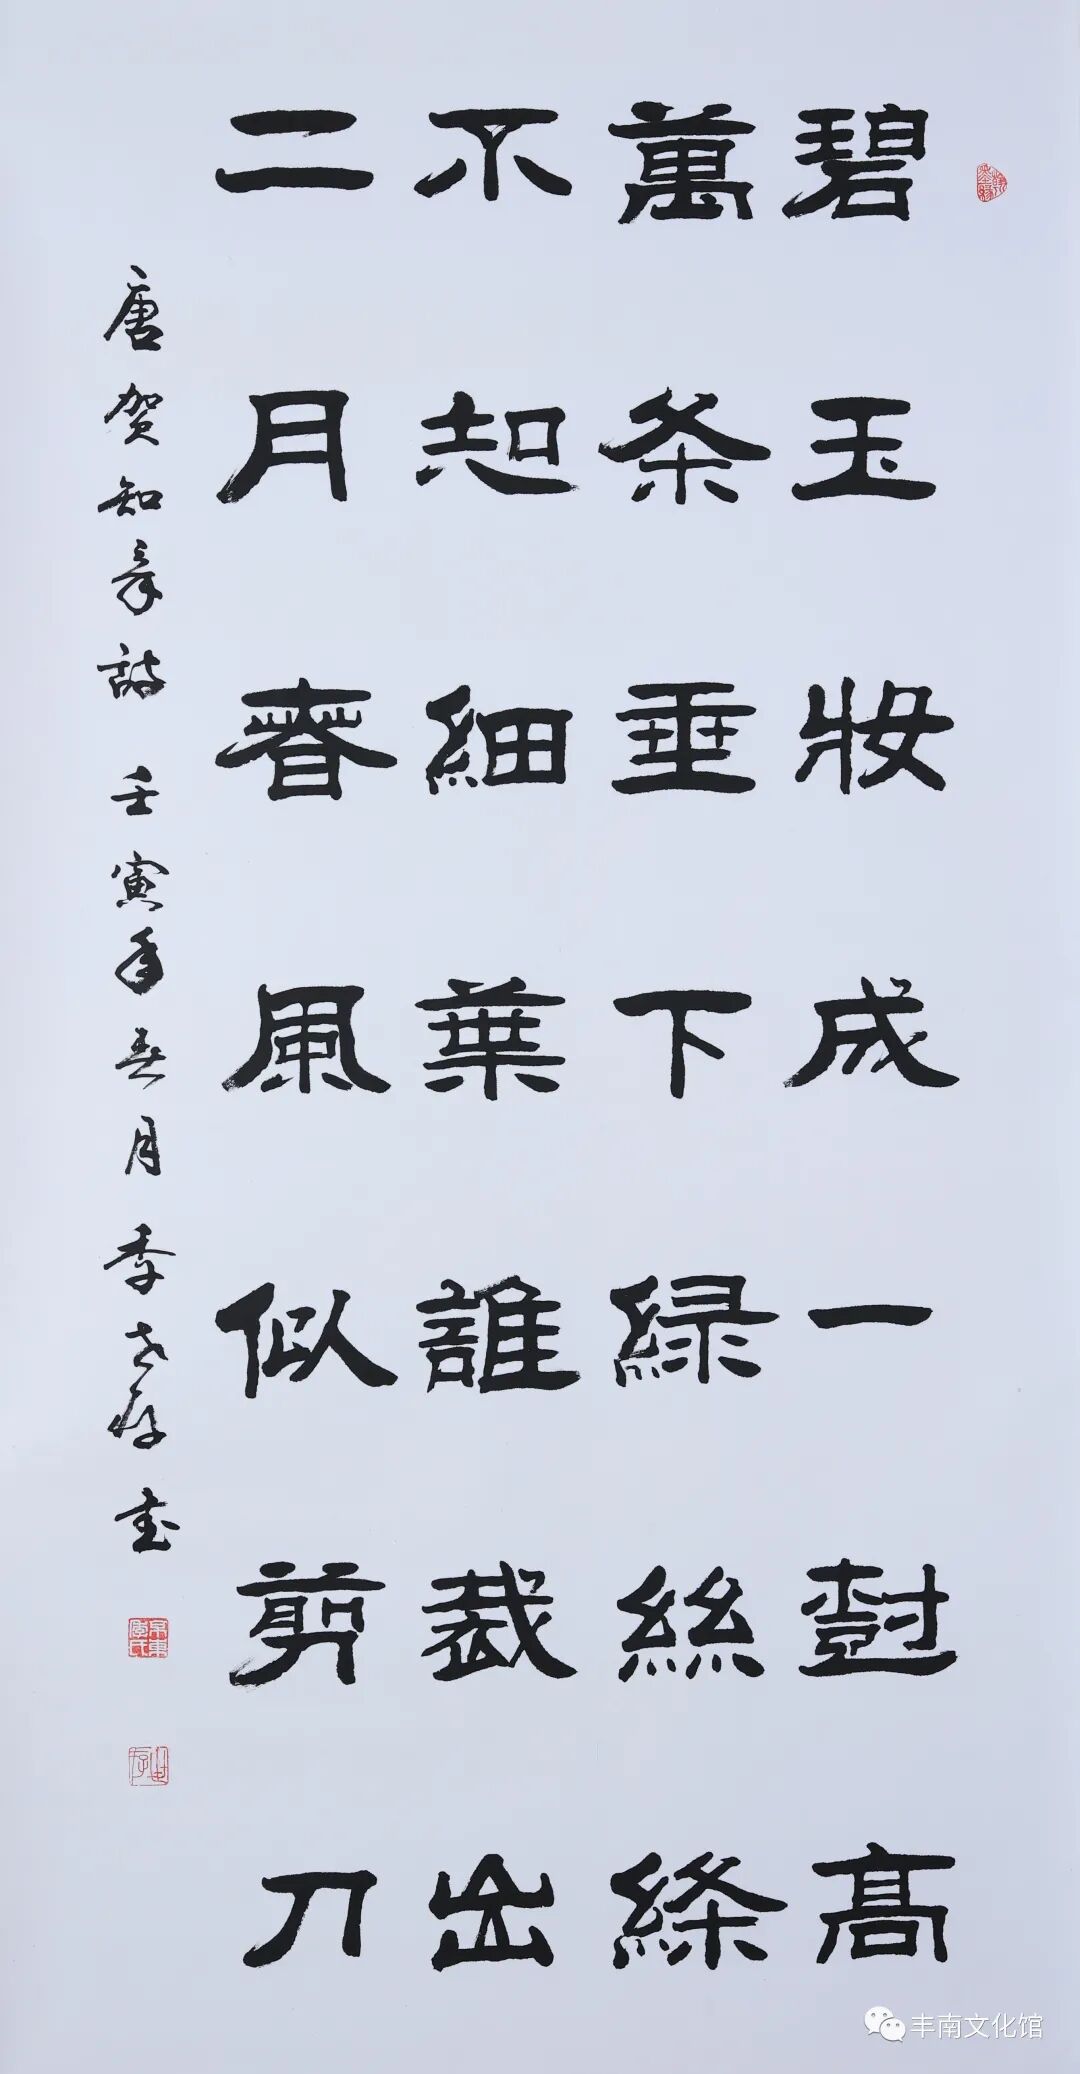 碧玉妝成一樹高
萬条垂下緑絲絛
不知細葉誰裁出
二月春風似剪刀
唐贺知章詩 壬寅年春月 季世存書
丰南文化馆